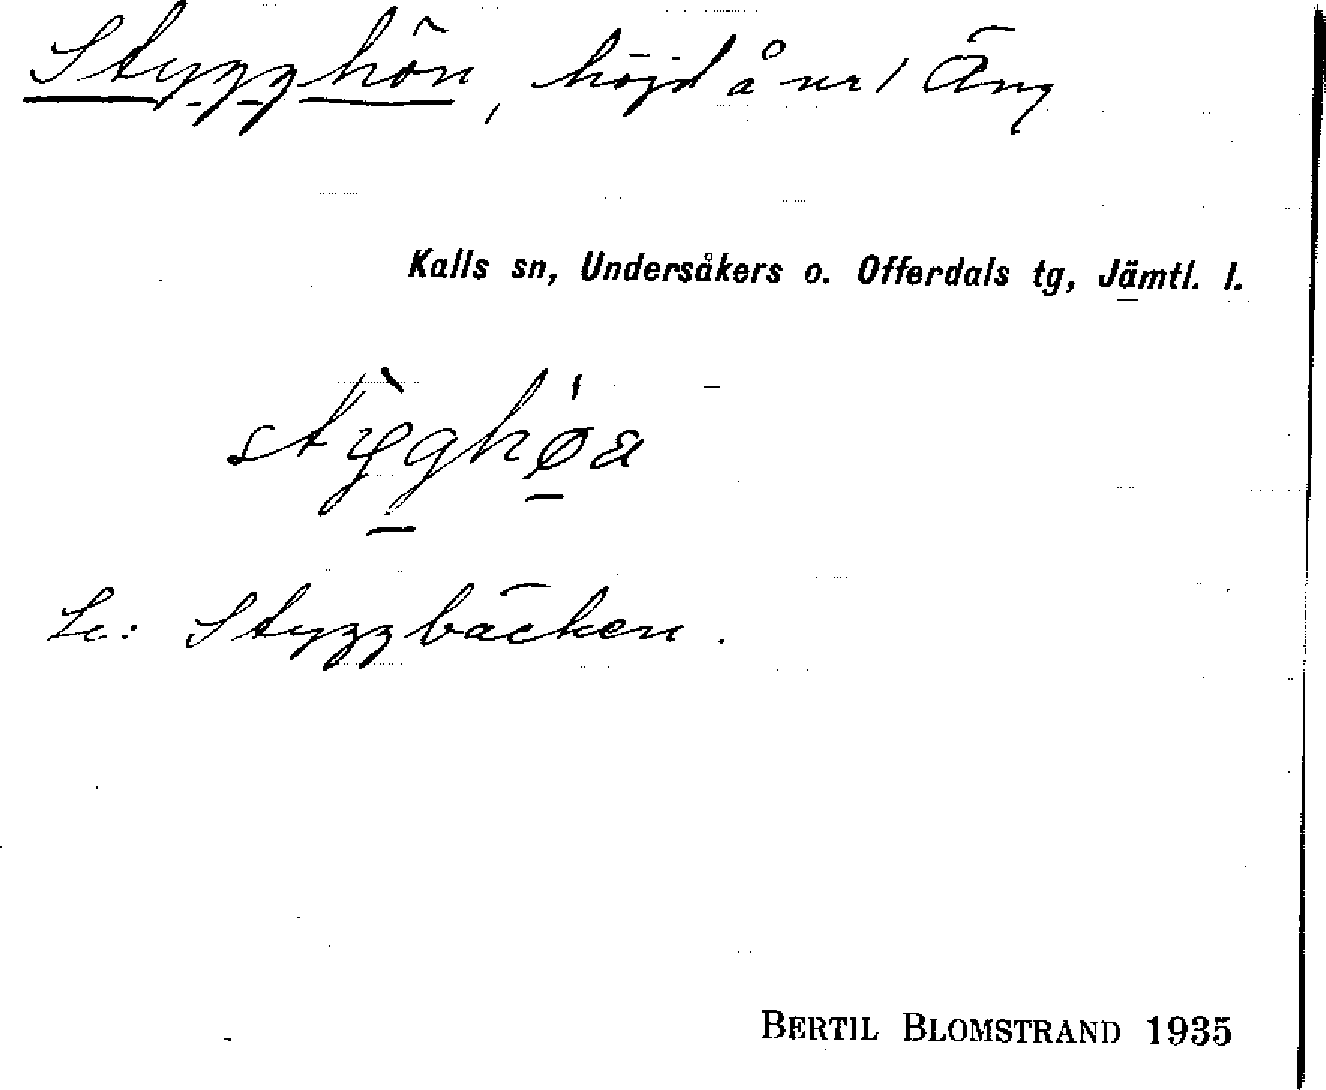 Stygghön, höjd å nr 1 Äng
Kalls sn, Undersåkers o. Offerdals tg, Jämtl. l.
stỳghǿa
Se: Styggbäcken.
BERTIL BLOMSTRAND 1935